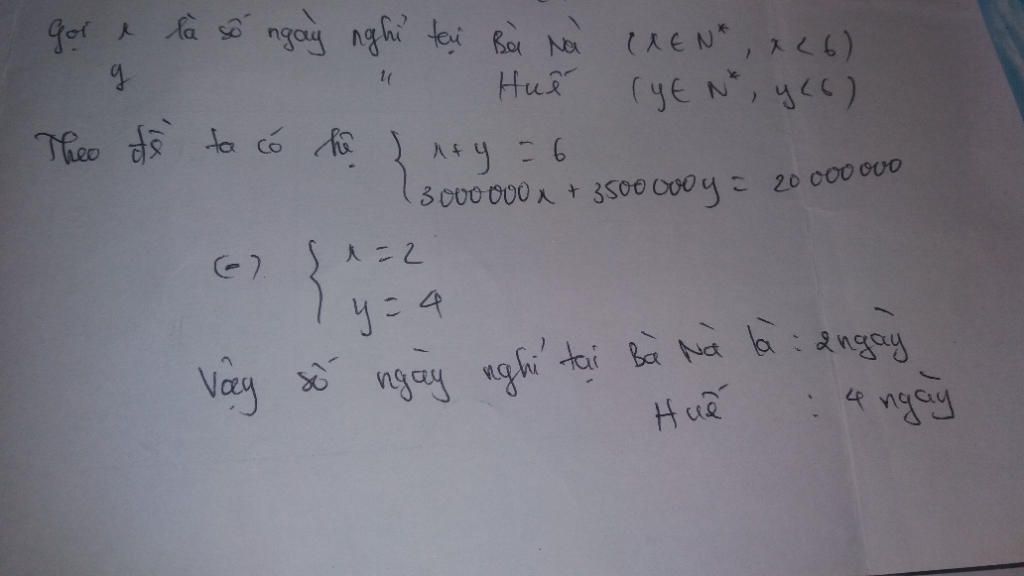 Gọi x là số ngày nghỉ tại Bà Nà (x ∈ N*, x < 6)
y " Huế (y ∈ N*, y < 6)
Theo đề ta có hệ { x + y = 6
3000000x + 3500000y = 20000000
(=) { x = 2
y = 4
Vậy số ngày nghỉ tại Bà Nà là : 2 ngày
Huế : 4 ngày